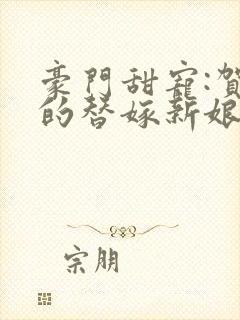 豪門甜寵:賀
的替嫁新娘
宗朋